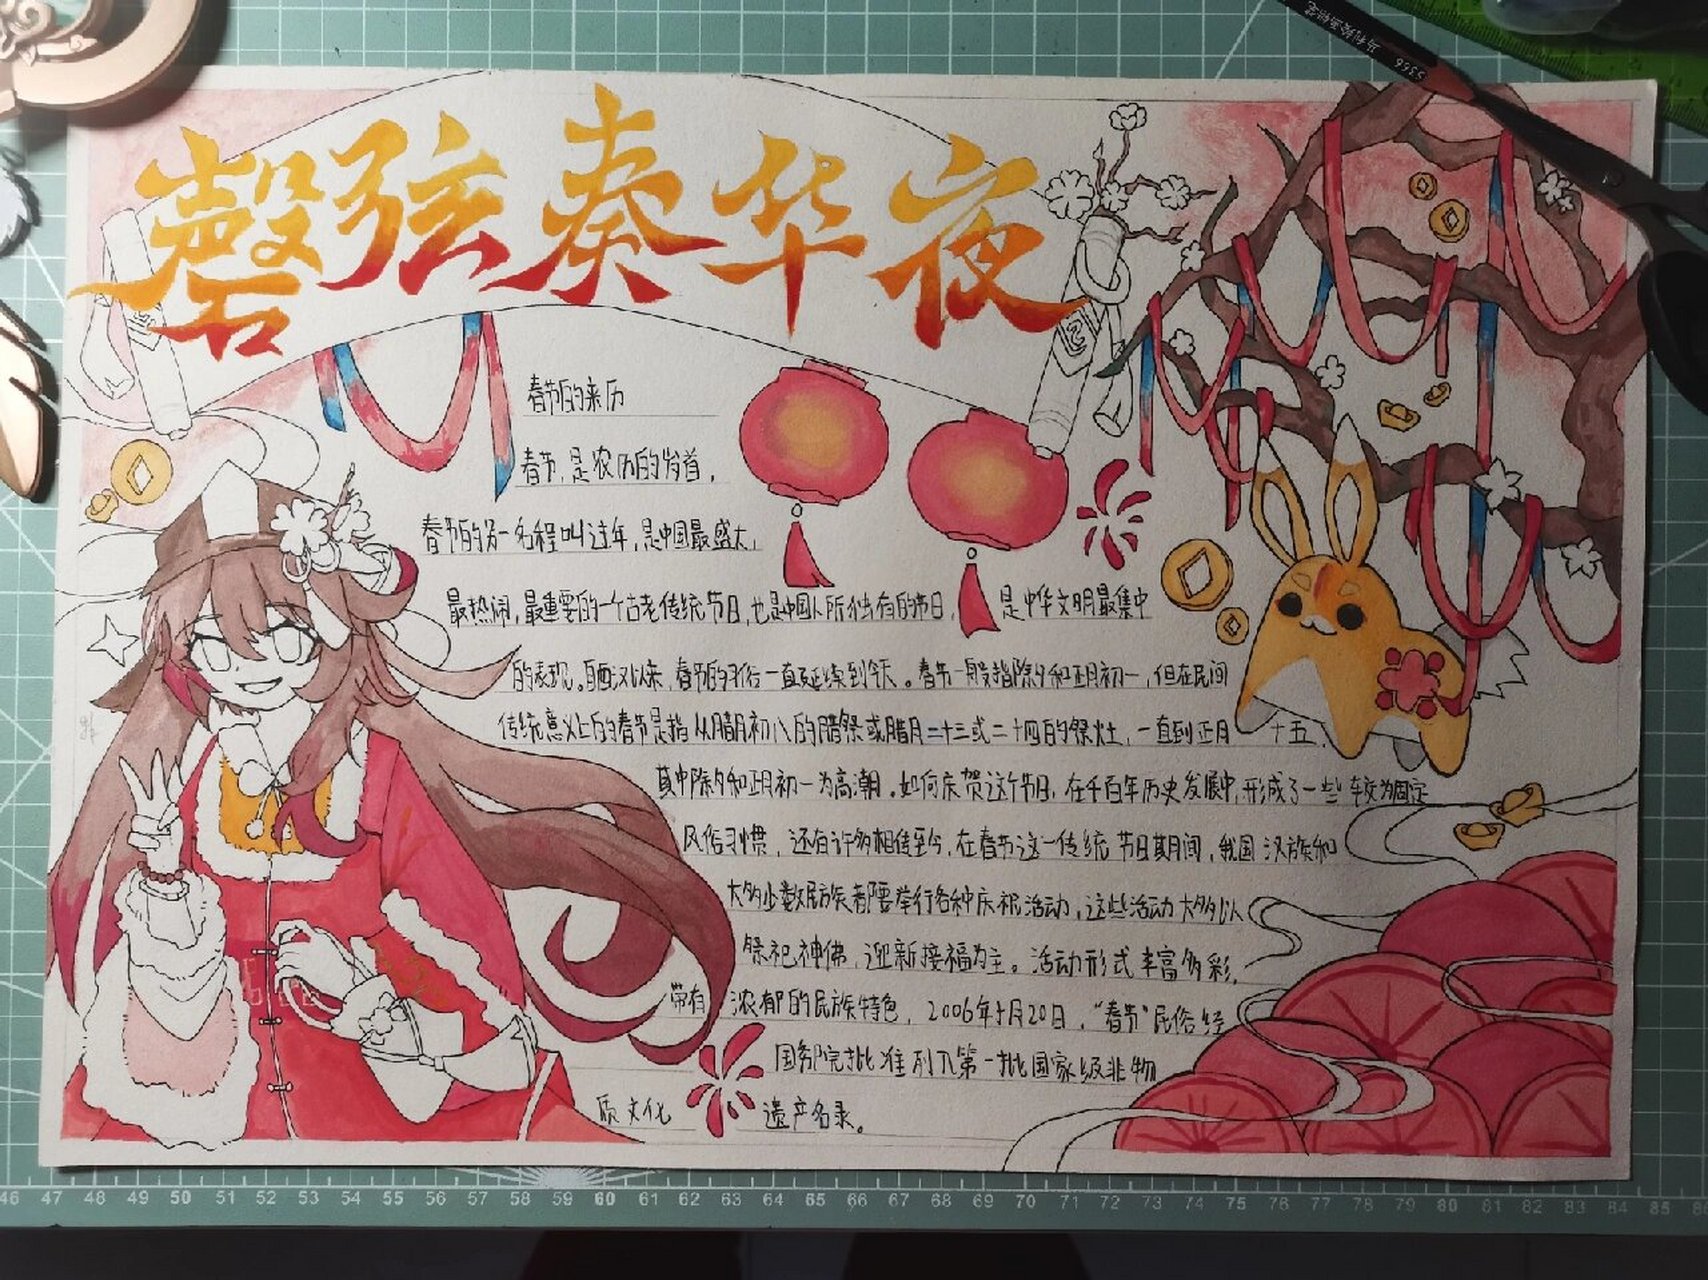 磬弦奏华夜
春节的来历
春节,是农历的岁首,
春节的另一名程叫过年,是中国最盛大,
最热闹,最重要的一个古老传统节日,也是中国人所独有的节日, 是中华文明最集中
的表现。自西汉以来,春节的习俗一直延续到今天。春节一般指除夕和正月初一,但在民间
传统意义上的春节是指从腊月初八的腊祭或腊月二十三或二十四的祭灶,一直到正月 十五,
其中除夕和正月初一为高潮。如何庆贺这个节日,在千百年历史发展中,形成了一些较为固定
风俗习惯,还有许多相传至今,在春节这一传统节日期间,我国汉族和
大多少数民族都要举行各种庆祝活动,这些活动大多以
祭祀神佛,迎新接福为主。活动形式丰富多彩,
带有浓郁的民族特色,2006年5月20日,“春节”民俗经
国务院批准列入第一批国家级非物
质文化 遗产名录。
马利绘画铅笔
5366
46 47 48 49 50 51 52 53 54 55 56 57 58 59 60 61 62 63 64 65 66 67 68 69 70 71 72 73 74 75 76 77 78 79 80 81 82 83 84 85